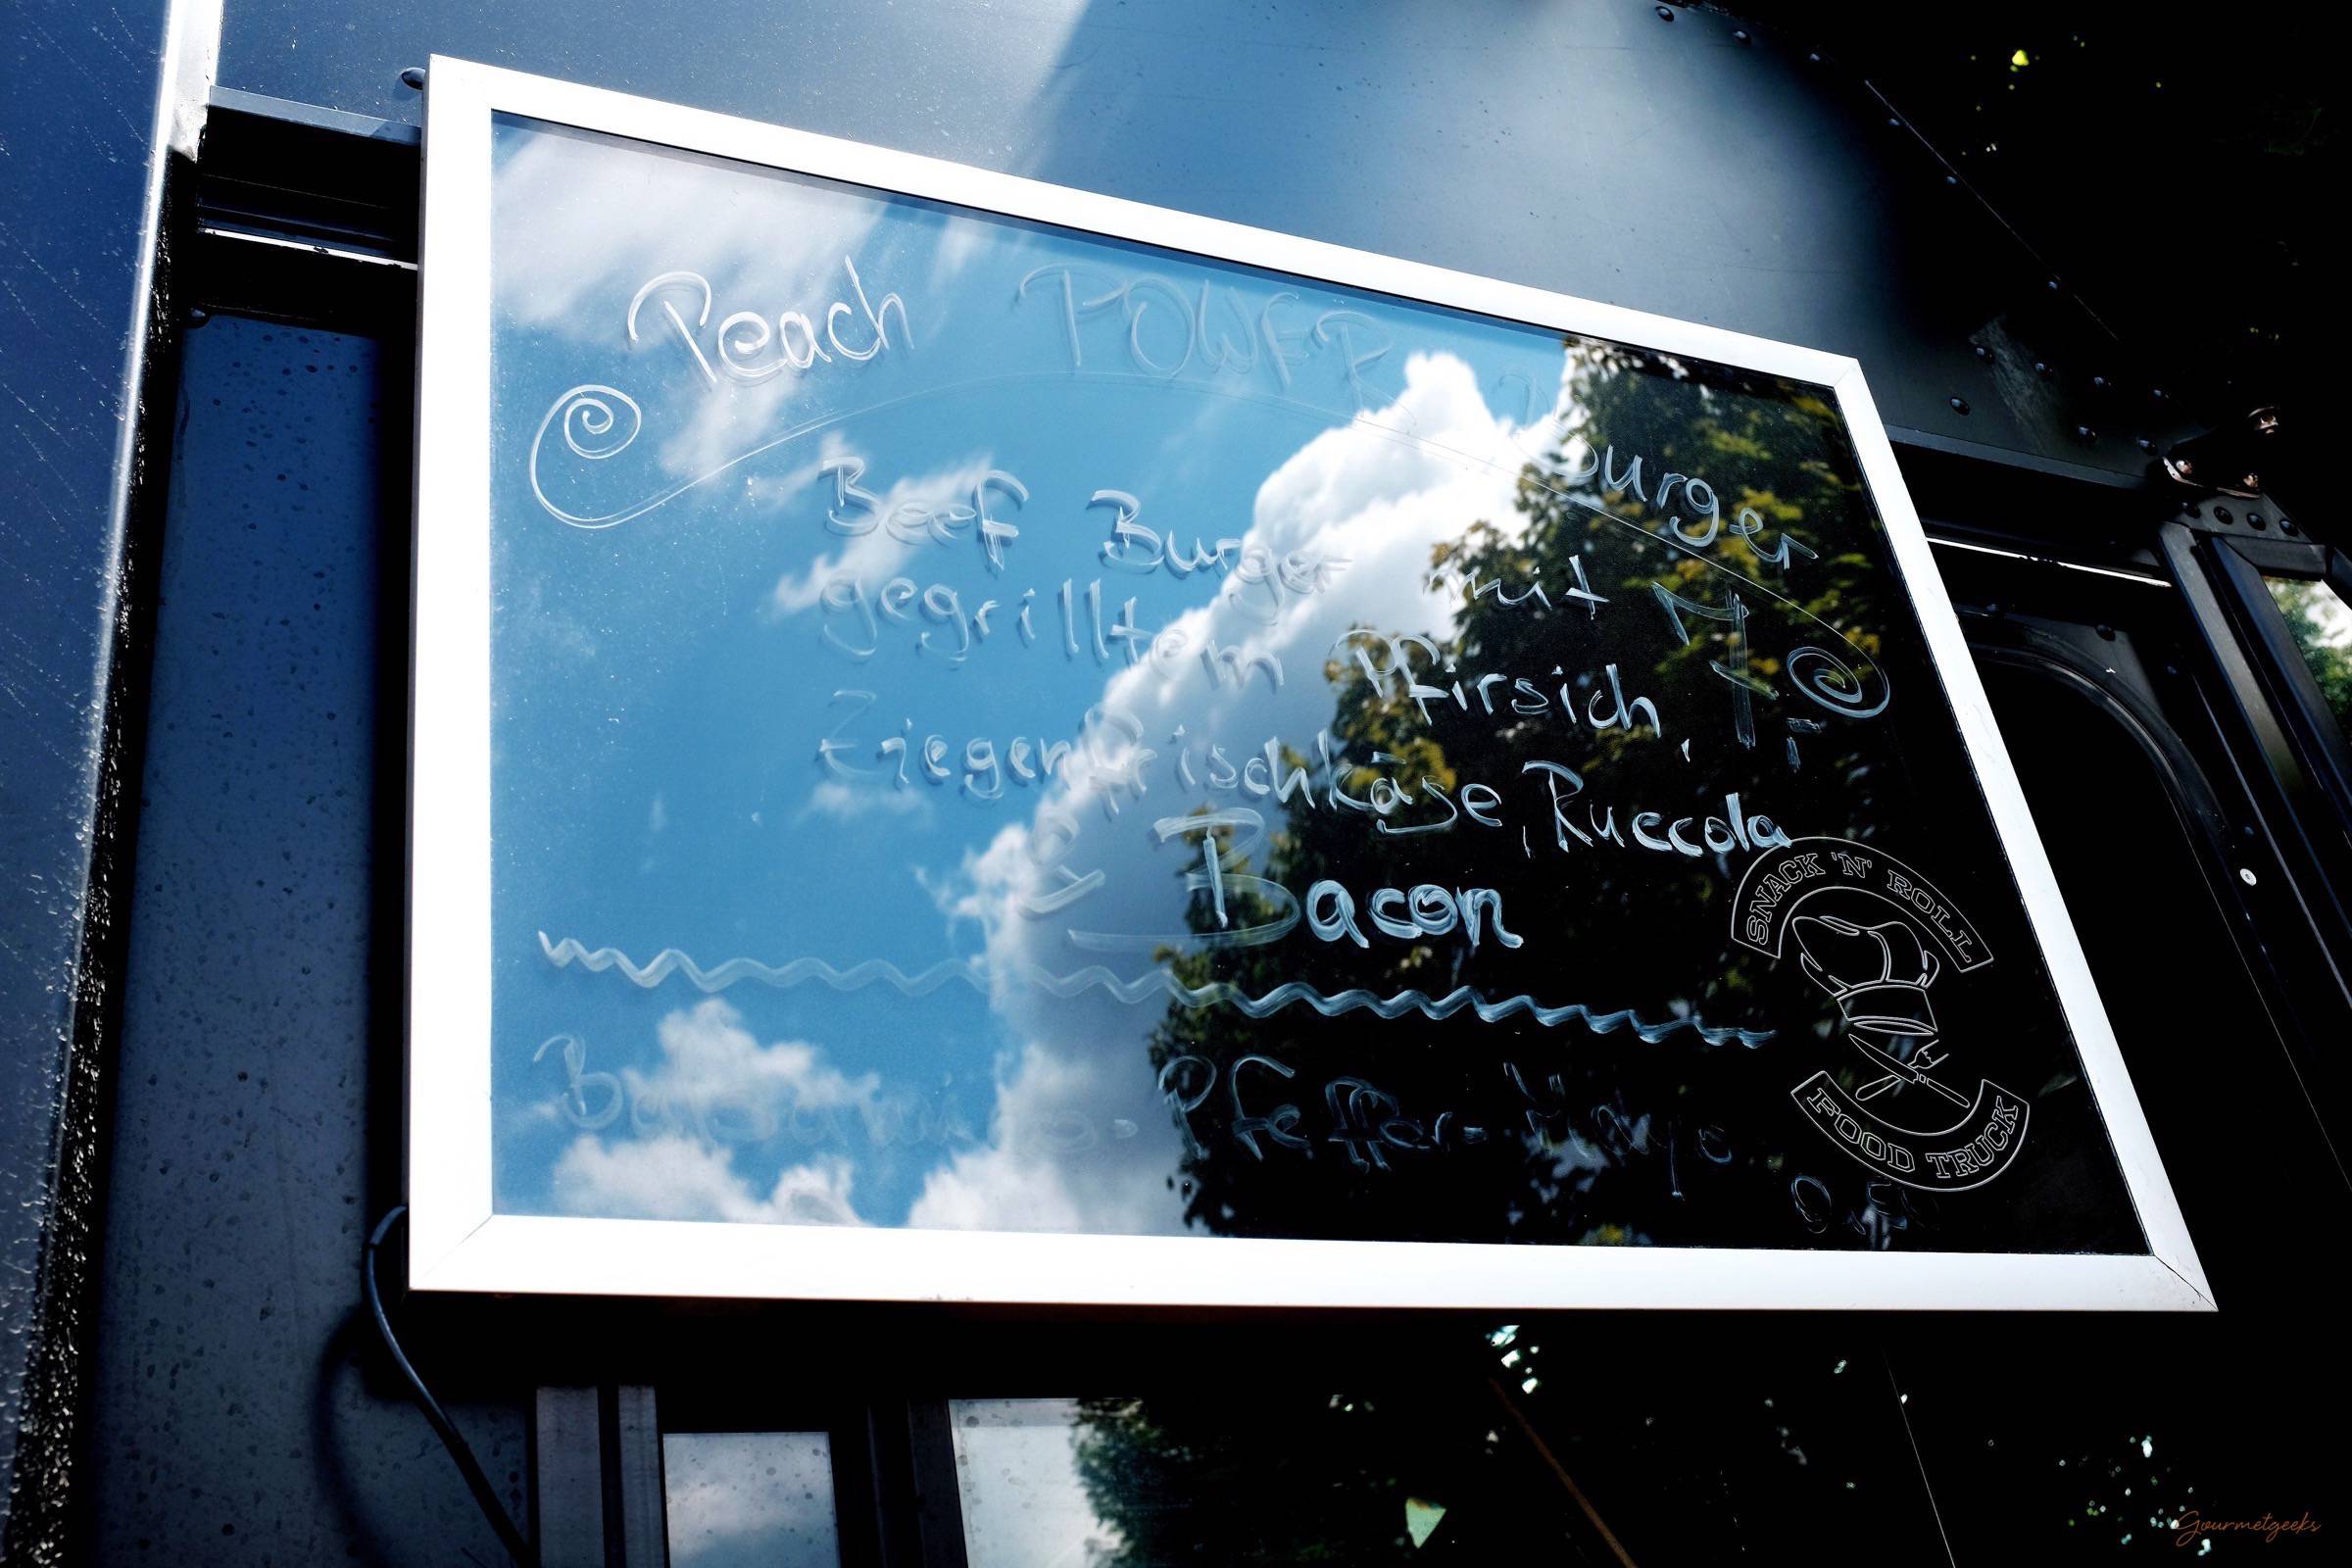 Peach POWER Burger
Beef Burger mit
gegrilltem Pfirsich,
Ziegenfrischkäse, Ruccola
& Bacon
7,-
Balsamico-Pfeffer-Mayo
0,50
SNACK 'N' ROLL
FOOD TRUCK
Gourmetgeeks